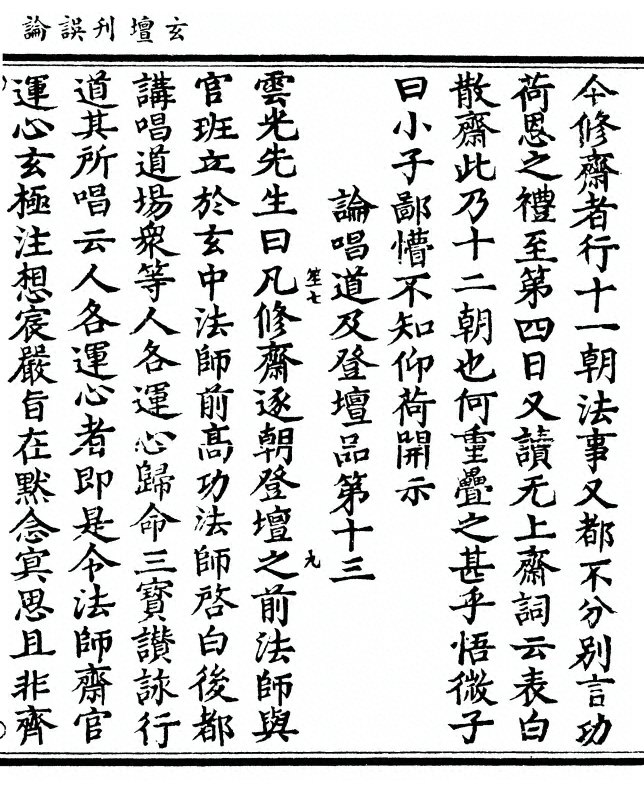 玄壇刊誤論
今修齋者行十一朝法事又都不分別言功
荷恩之禮至第四日又讀无上齋詞云表白
散齋此乃十二朝也何重疊之甚乎悟微子
曰小子鄙懵不知仰荷開示
論唱道及登壇品第十三
笙七
雲光先生曰凡修齋逐朝登壇之前法師與
九
官班立於玄中法師前高功法師啓白後都
講唱道場衆等人各運心歸命三寶讃詠行
道其所唱云人各運心者即是令法師齋官
運心玄極注想宸嚴旨在默念㝠思且非齊